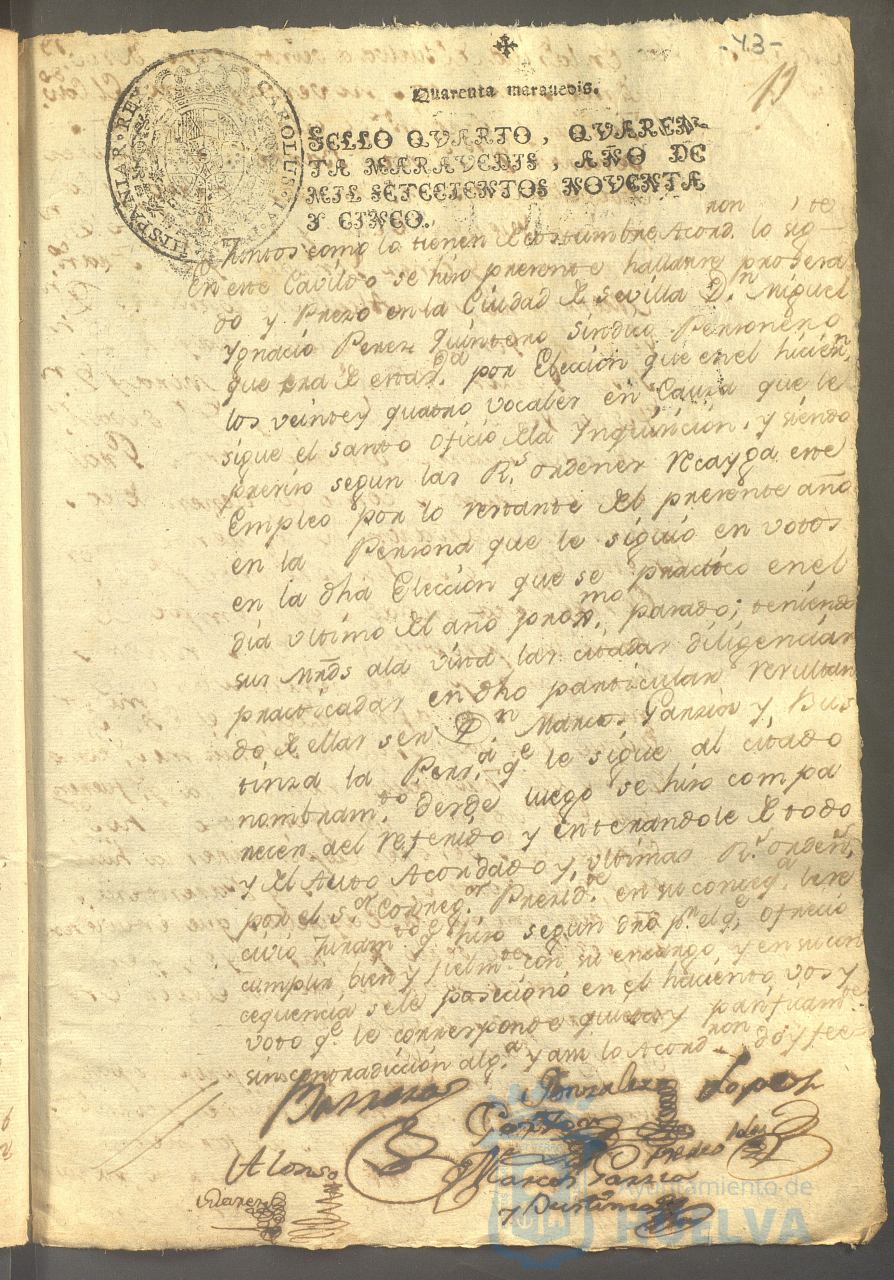 -43-
13
Quarenta maravedis.
HISPANIAR. REX CAROLUS IV
SELLO QVARTO, QVAREN-
TA MARAVEDIS, AÑO DE
MIL SETECIENTOS NOVENTA
Y CINCO.
Juntos como lo tienen de costumbre Acord.ron lo sig.te
En este Cavildo se hiso presente hallarse prosesa
do y Prezo en la Ciudad de Sevilla D.n Miguel
Ygnacio Perez Quintero Sindico Personero
que era de esta por Elección que en el hicie.n
los veinte y quatro vocales en Causa que le
sigue el Santo Oficio de la Ynquisicion, y siendo
presiso segun las R.s ordenes recayga este
Empleo por lo restante del presente año
en la Persona que le siguio en votos
en la dha Elección que se practicó en el
dia ultimo del año prox.mo pasado; teniendo
sus Mrds ala vista las citadas diligencias
practicadas en dho particular resultan
do de ellas ser D.n Marcos Garzia y Bus
tinza la Pers.a q.e le sigue al citado
nombram.to desde luego se hiso compa
recer del referido y enterandole de todo
y del Auto Acordado y ultimas R.s orden.s
por el S.or Correg.or Presid.te en su conseq.a
civio Juram.to q.e hiso segun dro p.r el q.e ofreció
cumplir bien y fielm.te con su encargo, y en su con
cequencia se le posecionó en el haciento, vos y
voto q.e le corresponde quieta y pacificam.te
sin contradiccion alg.a y asi lo Acord.ron doy fee
Barrera Gonzalez Lopez
Alonso
Marcos Garzia
y Bustinza
Suarez
Ayuntamiento de
HUELVA